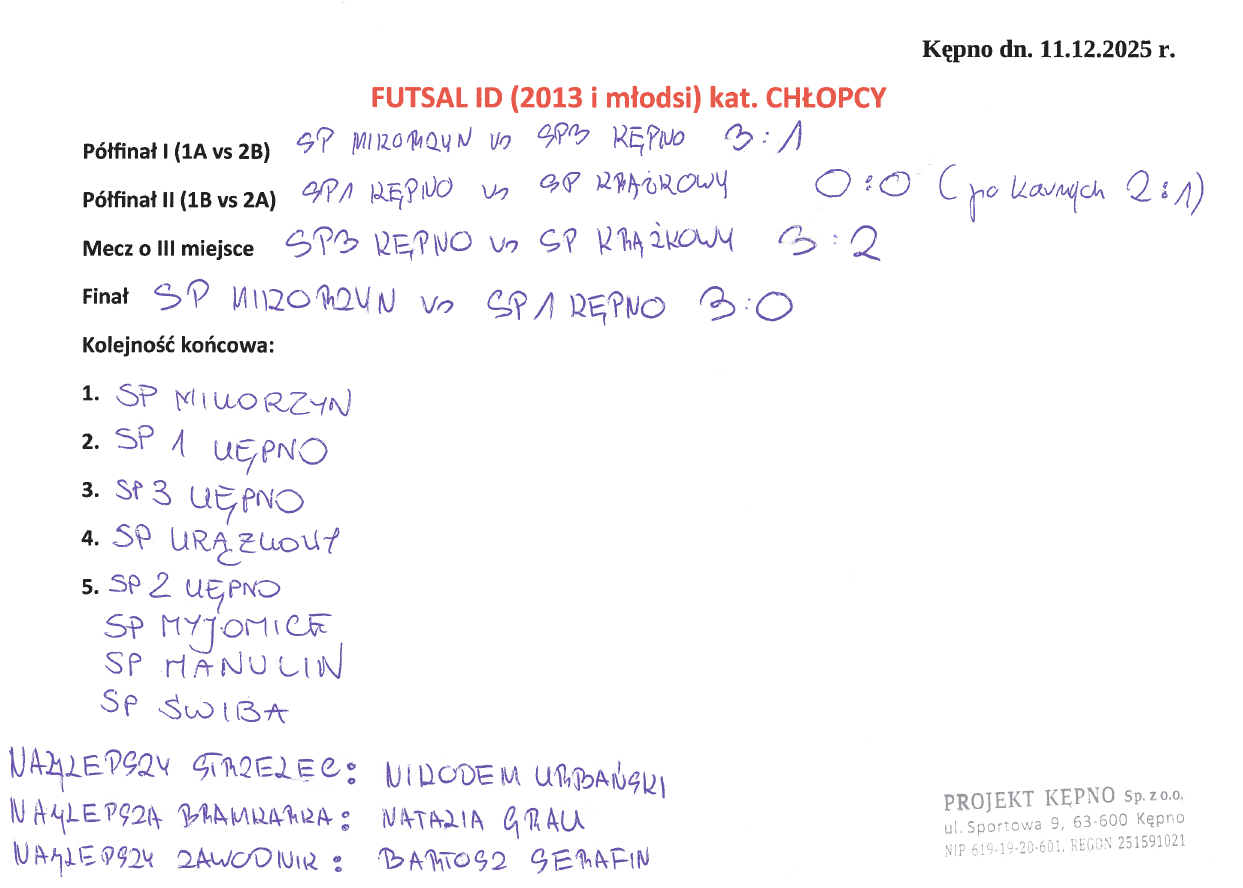 Kępno dn. 11.12.2025 r.
FUTSAL ID (2013 i młodsi) kat. CHŁOPCY
Półfinał I (1A vs 2B) SP MIKORZYN vs SP3 KĘPNO 3:1
Półfinał II (1B vs 2A) SP1 KĘPNO vs SP KRĄŻKOWY 0:0 (po karnych 2:1)
Mecz o III miejsce SP3 KĘPNO vs SP KRĄŻKOWY 3:2
Finał SP MIKORZYN vs SP1 KĘPNO 3:0
Kolejność końcowa:
1. SP MIKORZYN
2. SP 1 KĘPNO
3. SP 3 KĘPNO
4. SP KRĄŻKOWY
5. SP 2 KĘPNO
SP MYJOMICE
SP HANULIN
SP ŚWIBA
NAJLEPSZY STRZELEC: NIKODEM URBAŃSKI
NAJLEPSZA BRAMKARKA: NATALIA GRAU
NAJLEPSZY ZAWODNIK: BARTOSZ SERAFIN
PROJEKT KĘPNO Sp. z o.o.
ul. Sportowa 9, 63-600 Kępno
NIP 619-19-20-601, REGON 251591021